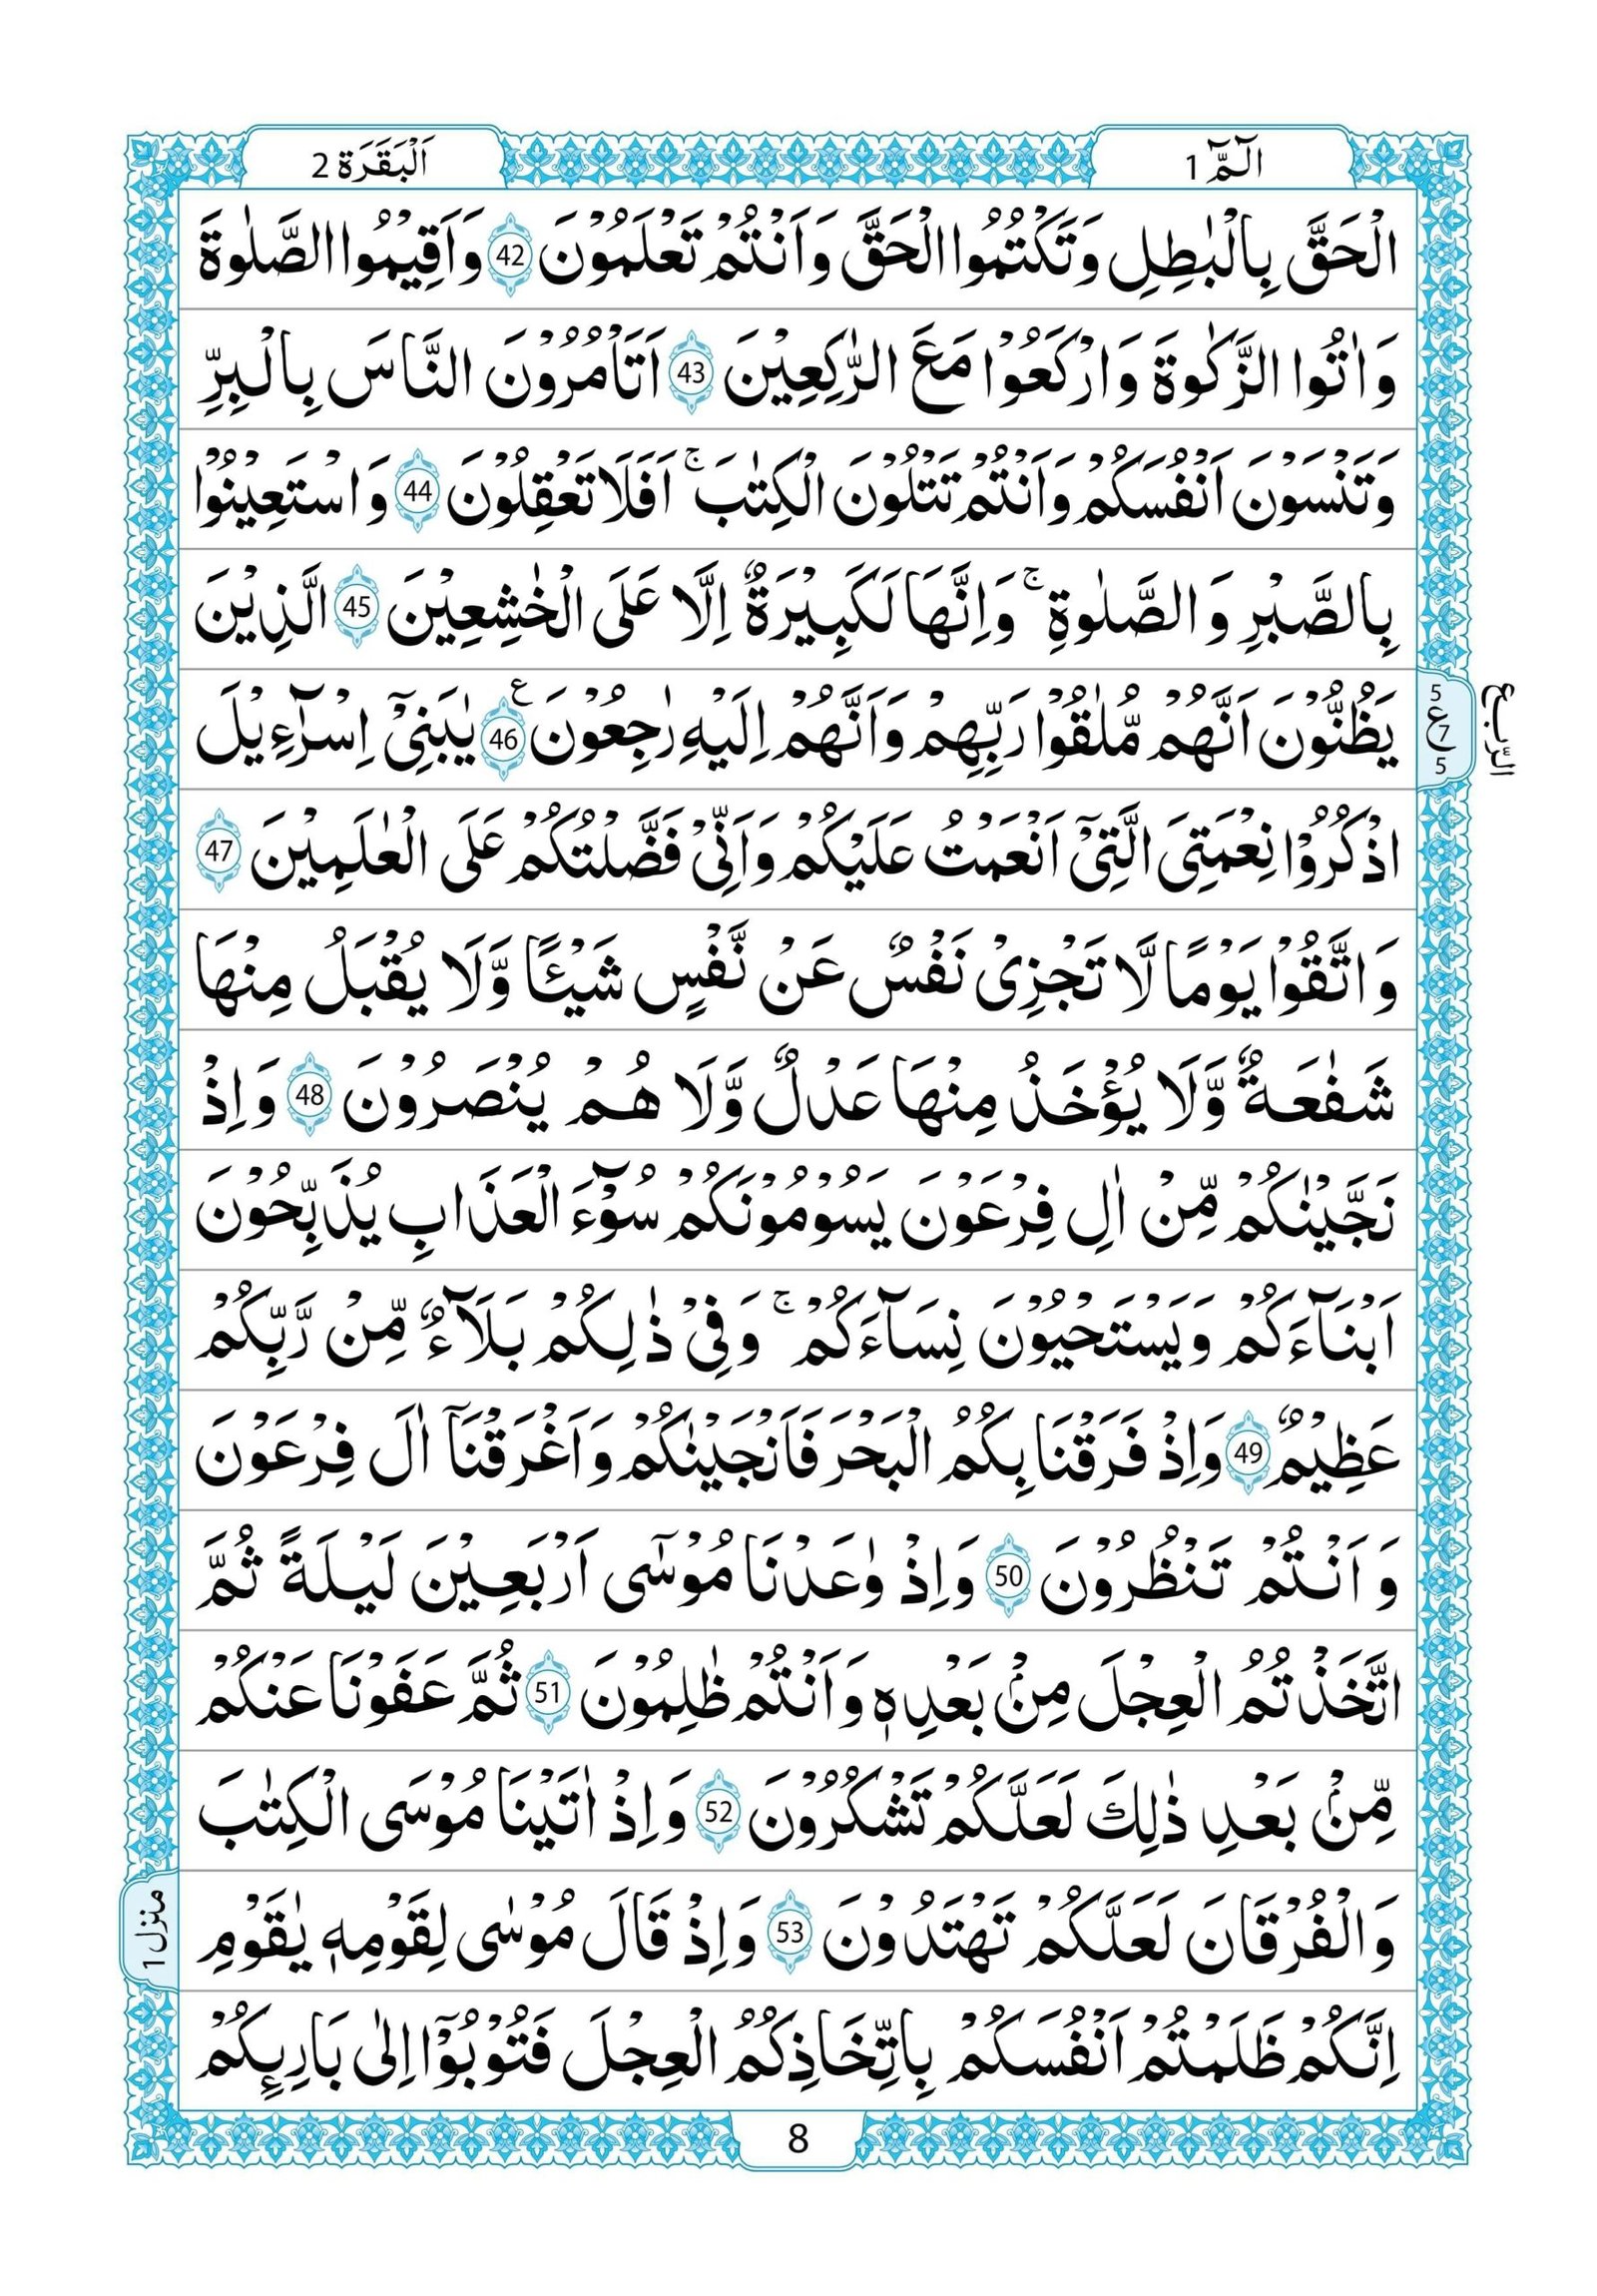 الٓمّٓ 1
اَلْبَقَرَة 2
الْحَقَّ بِالْبٰطِلِ وَتَكْتُمُوا الْحَقَّ وَاَنْتُمْ تَعْلَمُوْنَ 42 وَاَقِيْمُوا الصَّلٰوةَ
وَاٰتُوا الزَّكٰوةَ وَارْكَعُوْا مَعَ الرّٰكِعِيْنَ 43 اَتَاْمُرُوْنَ النَّاسَ بِالْبِرِّ
وَتَنْسَوْنَ اَنْفُسَكُمْ وَاَنْتُمْ تَتْلُوْنَ الْكِتٰبَ ۚ اَفَلَا تَعْقِلُوْنَ 44 وَاسْتَعِيْنُوْا
بِالصَّبْرِ وَالصَّلٰوةِ ۚ وَاِنَّهَا لَكَبِيْرَةٌ اِلَّا عَلَى الْخٰشِعِيْنَ 45 الَّذِيْنَ
يَظُنُّوْنَ اَنَّهُمْ مُّلٰقُوْا رَبِّهِمْ وَاَنَّهُمْ اِلَيْهِ رٰجِعُوْنَ ع 46 يٰبَنِيْٓ اِسْرَآءِيْلَ
5
ع 7
5
الربع
اذْكُرُوْا نِعْمَتِيَ الَّتِيْٓ اَنْعَمْتُ عَلَيْكُمْ وَاَنِّيْ فَضَّلْتُكُمْ عَلَى الْعٰلَمِيْنَ 47
وَاتَّقُوْا يَوْمًا لَّا تَجْزِيْ نَفْسٌ عَنْ نَّفْسٍ شَيْـًٔا وَّلَا يُقْبَلُ مِنْهَا
شَفٰعَةٌ وَّلَا يُؤْخَذُ مِنْهَا عَدْلٌ وَّلَا هُمْ يُنْصَرُوْنَ 48 وَاِذْ
نَجَّيْنٰكُمْ مِّنْ اٰلِ فِرْعَوْنَ يَسُوْمُوْنَكُمْ سُوْٓءَ الْعَذَابِ يُذَبِّحُوْنَ
اَبْنَآءَكُمْ وَيَسْتَحْيُوْنَ نِسَآءَكُمْ ۚ وَفِيْ ذٰلِكُمْ بَلَآءٌ مِّنْ رَّبِّكُمْ
عَظِيْمٌ 49 وَاِذْ فَرَقْنَا بِكُمُ الْبَحْرَ فَاَنْجَيْنٰكُمْ وَاَغْرَقْنَآ اٰلَ فِرْعَوْنَ
وَاَنْتُمْ تَنْظُرُوْنَ 50 وَاِذْ وٰعَدْنَا مُوْسٰٓى اَرْبَعِيْنَ لَيْلَةً ثُمَّ
اتَّخَذْتُمُ الْعِجْلَ مِنْۢ بَعْدِهٖ وَاَنْتُمْ ظٰلِمُوْنَ 51 ثُمَّ عَفَوْنَا عَنْكُمْ
مِّنْۢ بَعْدِ ذٰلِكَ لَعَلَّكُمْ تَشْكُرُوْنَ 52 وَاِذْ اٰتَيْنَا مُوْسَى الْكِتٰبَ
وَالْفُرْقَانَ لَعَلَّكُمْ تَهْتَدُوْنَ 53 وَاِذْ قَالَ مُوْسٰى لِقَوْمِهٖ يٰقَوْمِ
منزل 1
اِنَّكُمْ ظَلَمْتُمْ اَنْفُسَكُمْ بِاتِّخَاذِكُمُ الْعِجْلَ فَتُوْبُوْٓا اِلٰى بَارِئِكُمْ
8